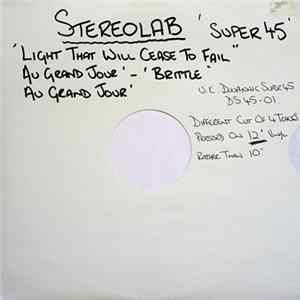 STEREOLAB 'SUPER 45'
'LIGHT THAT WILL CEASE TO FAIL"
AU GRAND JOUR' - 'BRITTLE'
AU GRAND JOUR'
U.K. DUOPHONIC SUPER 45
DS 45-01
DIFFERENT CUT OF 4 TRACKS
PRESSED ON 12" VINYL
RATHER THAN 10"